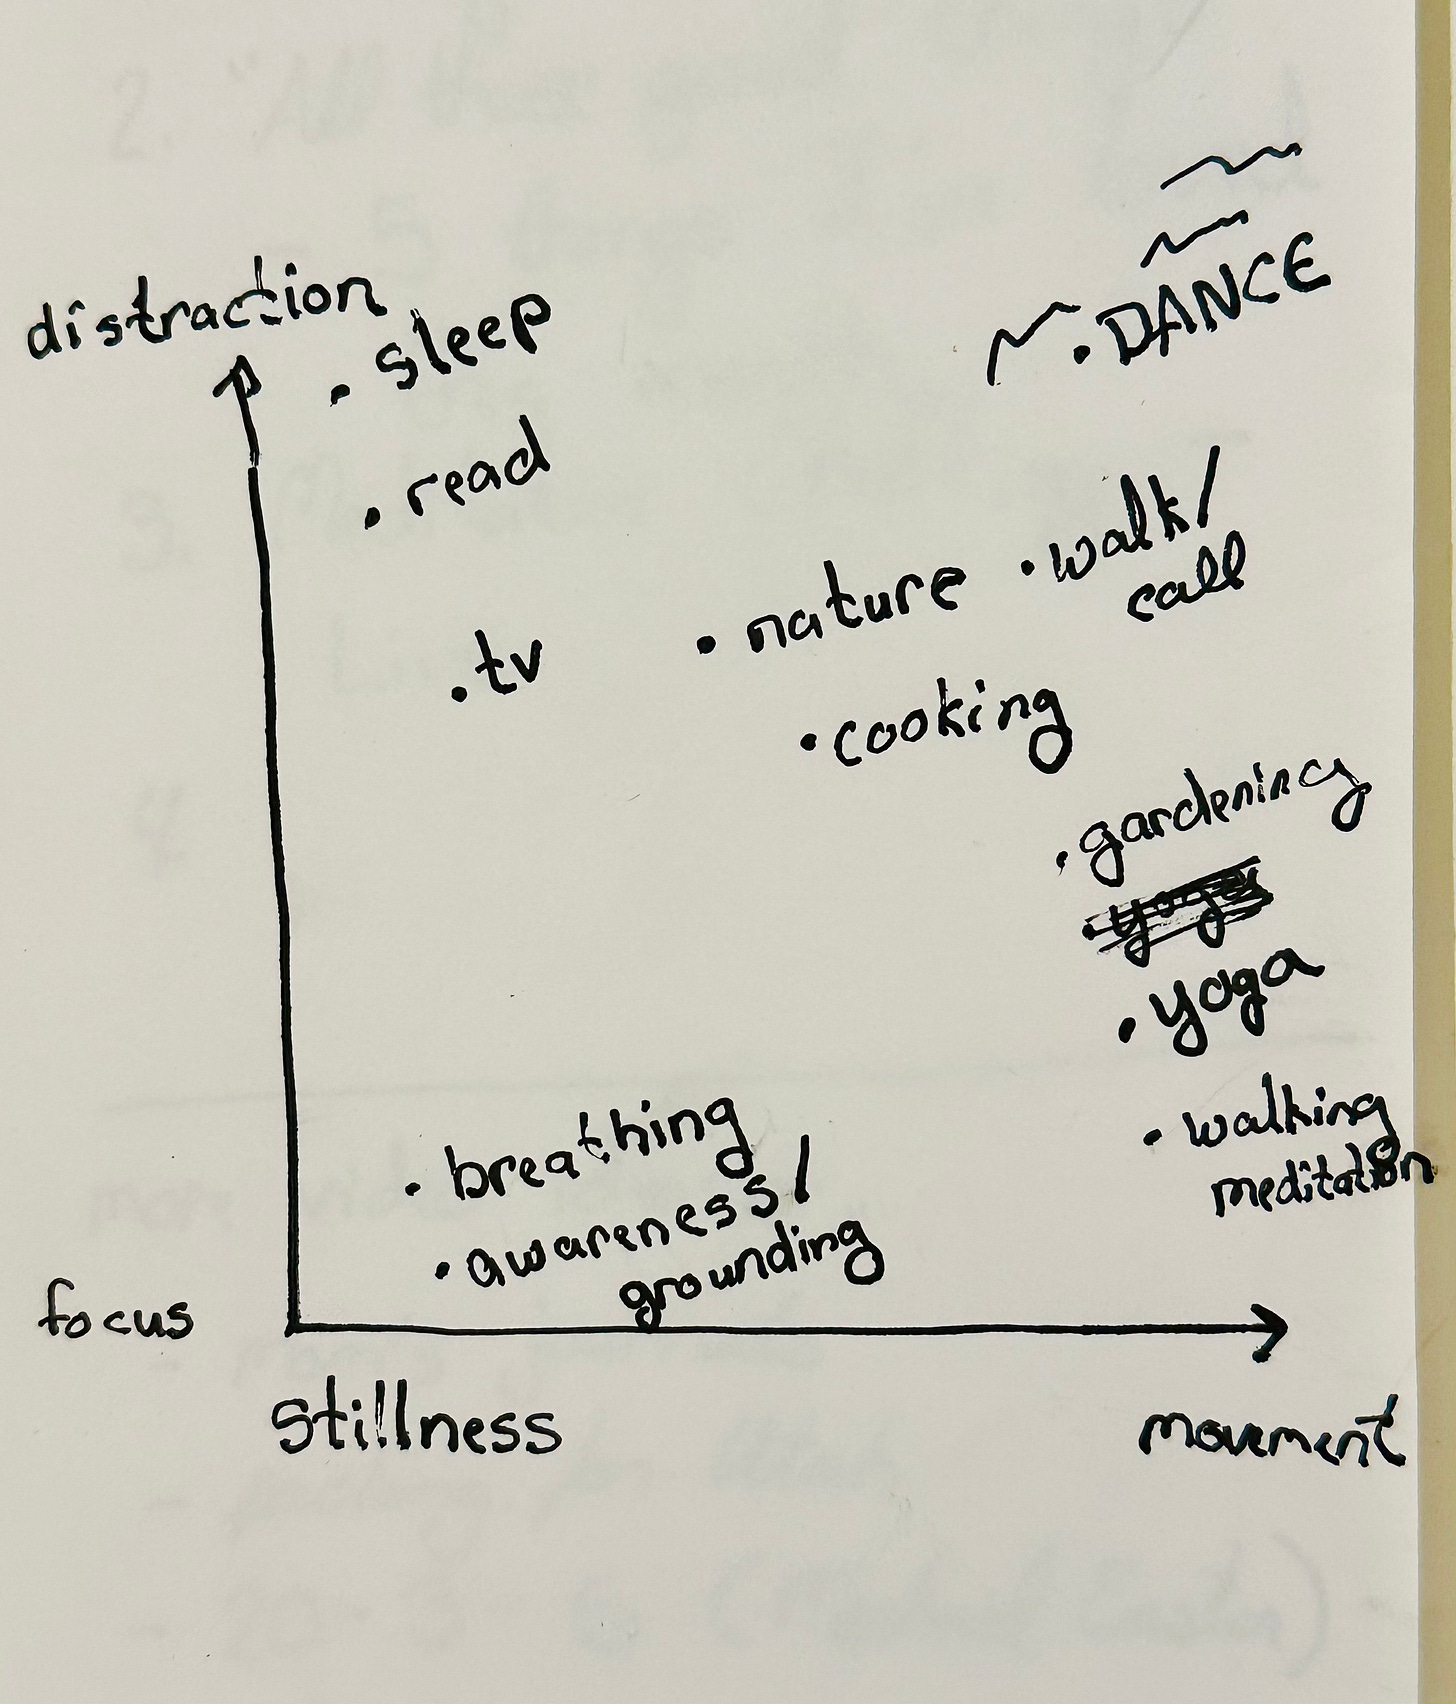 distraction
• sleep
• DANCE
• read
• walk/
call
• nature
• tv
• cooking
• gardening
• yoga
• yoga
• breathing
• walking
meditation
• awareness/
grounding
focus
stillness
movement